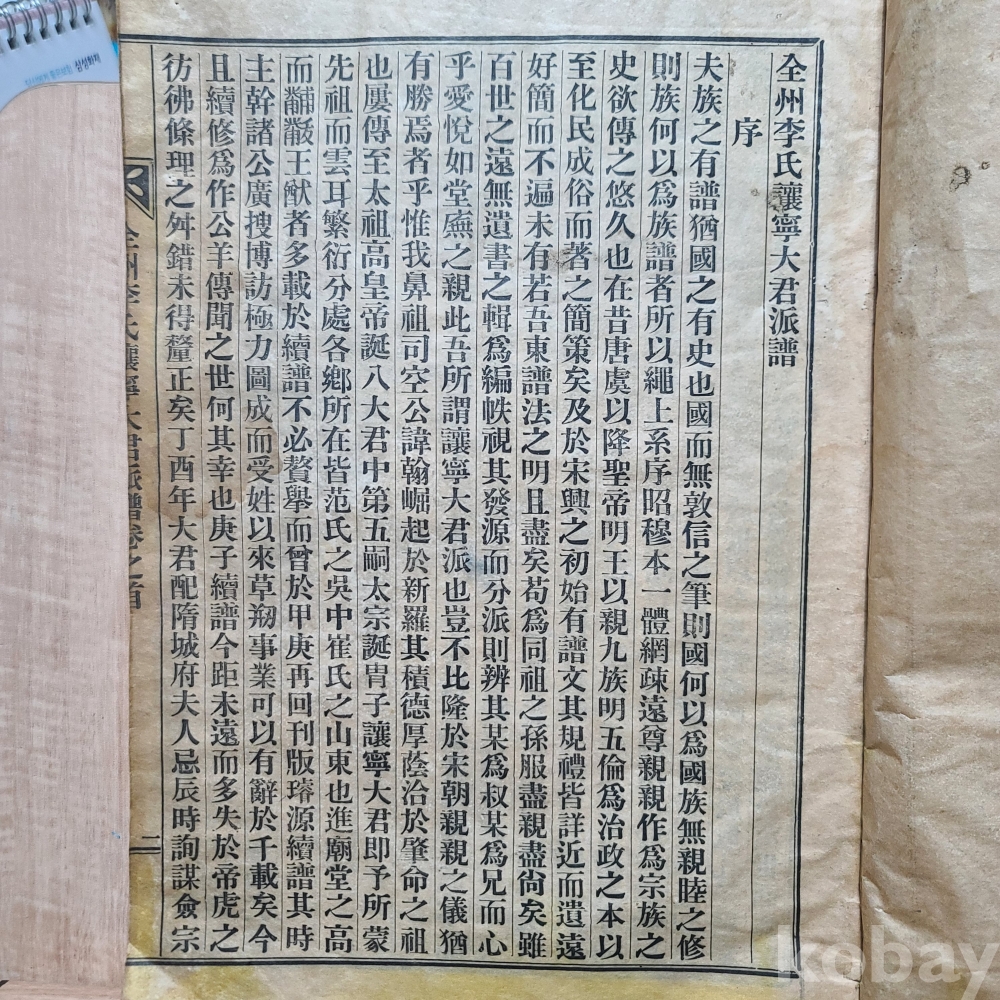 全州李氏讓寧大君派譜
序
夫族之有譜猶國之有史也國而無敦信之筆則國何以爲國族無親睦之修
則族何以爲族譜者所以繩上系序昭穆本一體網疎遠尊親親作爲宗族之
史欲傳之悠久也在昔唐虞以降聖帝明王以親九族明五倫爲治政之本以
至化民成俗而著之簡策矣及於宋興之初始有譜文其規禮皆詳近而遺遠
好簡而不遍未有若吾東譜法之明且盡矣苟爲同祖之孫服盡親盡尙矣雖
百世之遠無遺書之輯爲編帙視其發源而分派則辨其某爲叔某爲兄而心
乎愛悅如堂廡之親此吾所謂讓寧大君派也豈不比隆於宋朝親親之儀猶
有勝焉者乎惟我鼻祖司空公諱翰崛起於新羅其積德厚蔭洽於肇命之祖
也屢傳至太祖高皇帝誕八大君中第五嗣太宗誕冑子讓寧大君即予所蒙
先祖而雲耳繁衍分處各鄕所在皆范氏之吳中崔氏之山東也進廟堂之高
而黼黻王猷者多載於續譜不必贅擧而曾於甲庚再回刊版璿源續譜其時
主幹諸公廣搜博訪極力圖成而受姓以來草刱事業可以有辭於千載矣今
且續修爲作公羊傳聞之世何其幸也庚子續譜今距未遠而多失於帝虎之
彷彿條理之舛錯未得釐正矣丁酉年大君配隋城府夫人忌辰時詢謀僉宗
全州李氏讓寧大君派譜卷之首
二
삼성화재
kobay